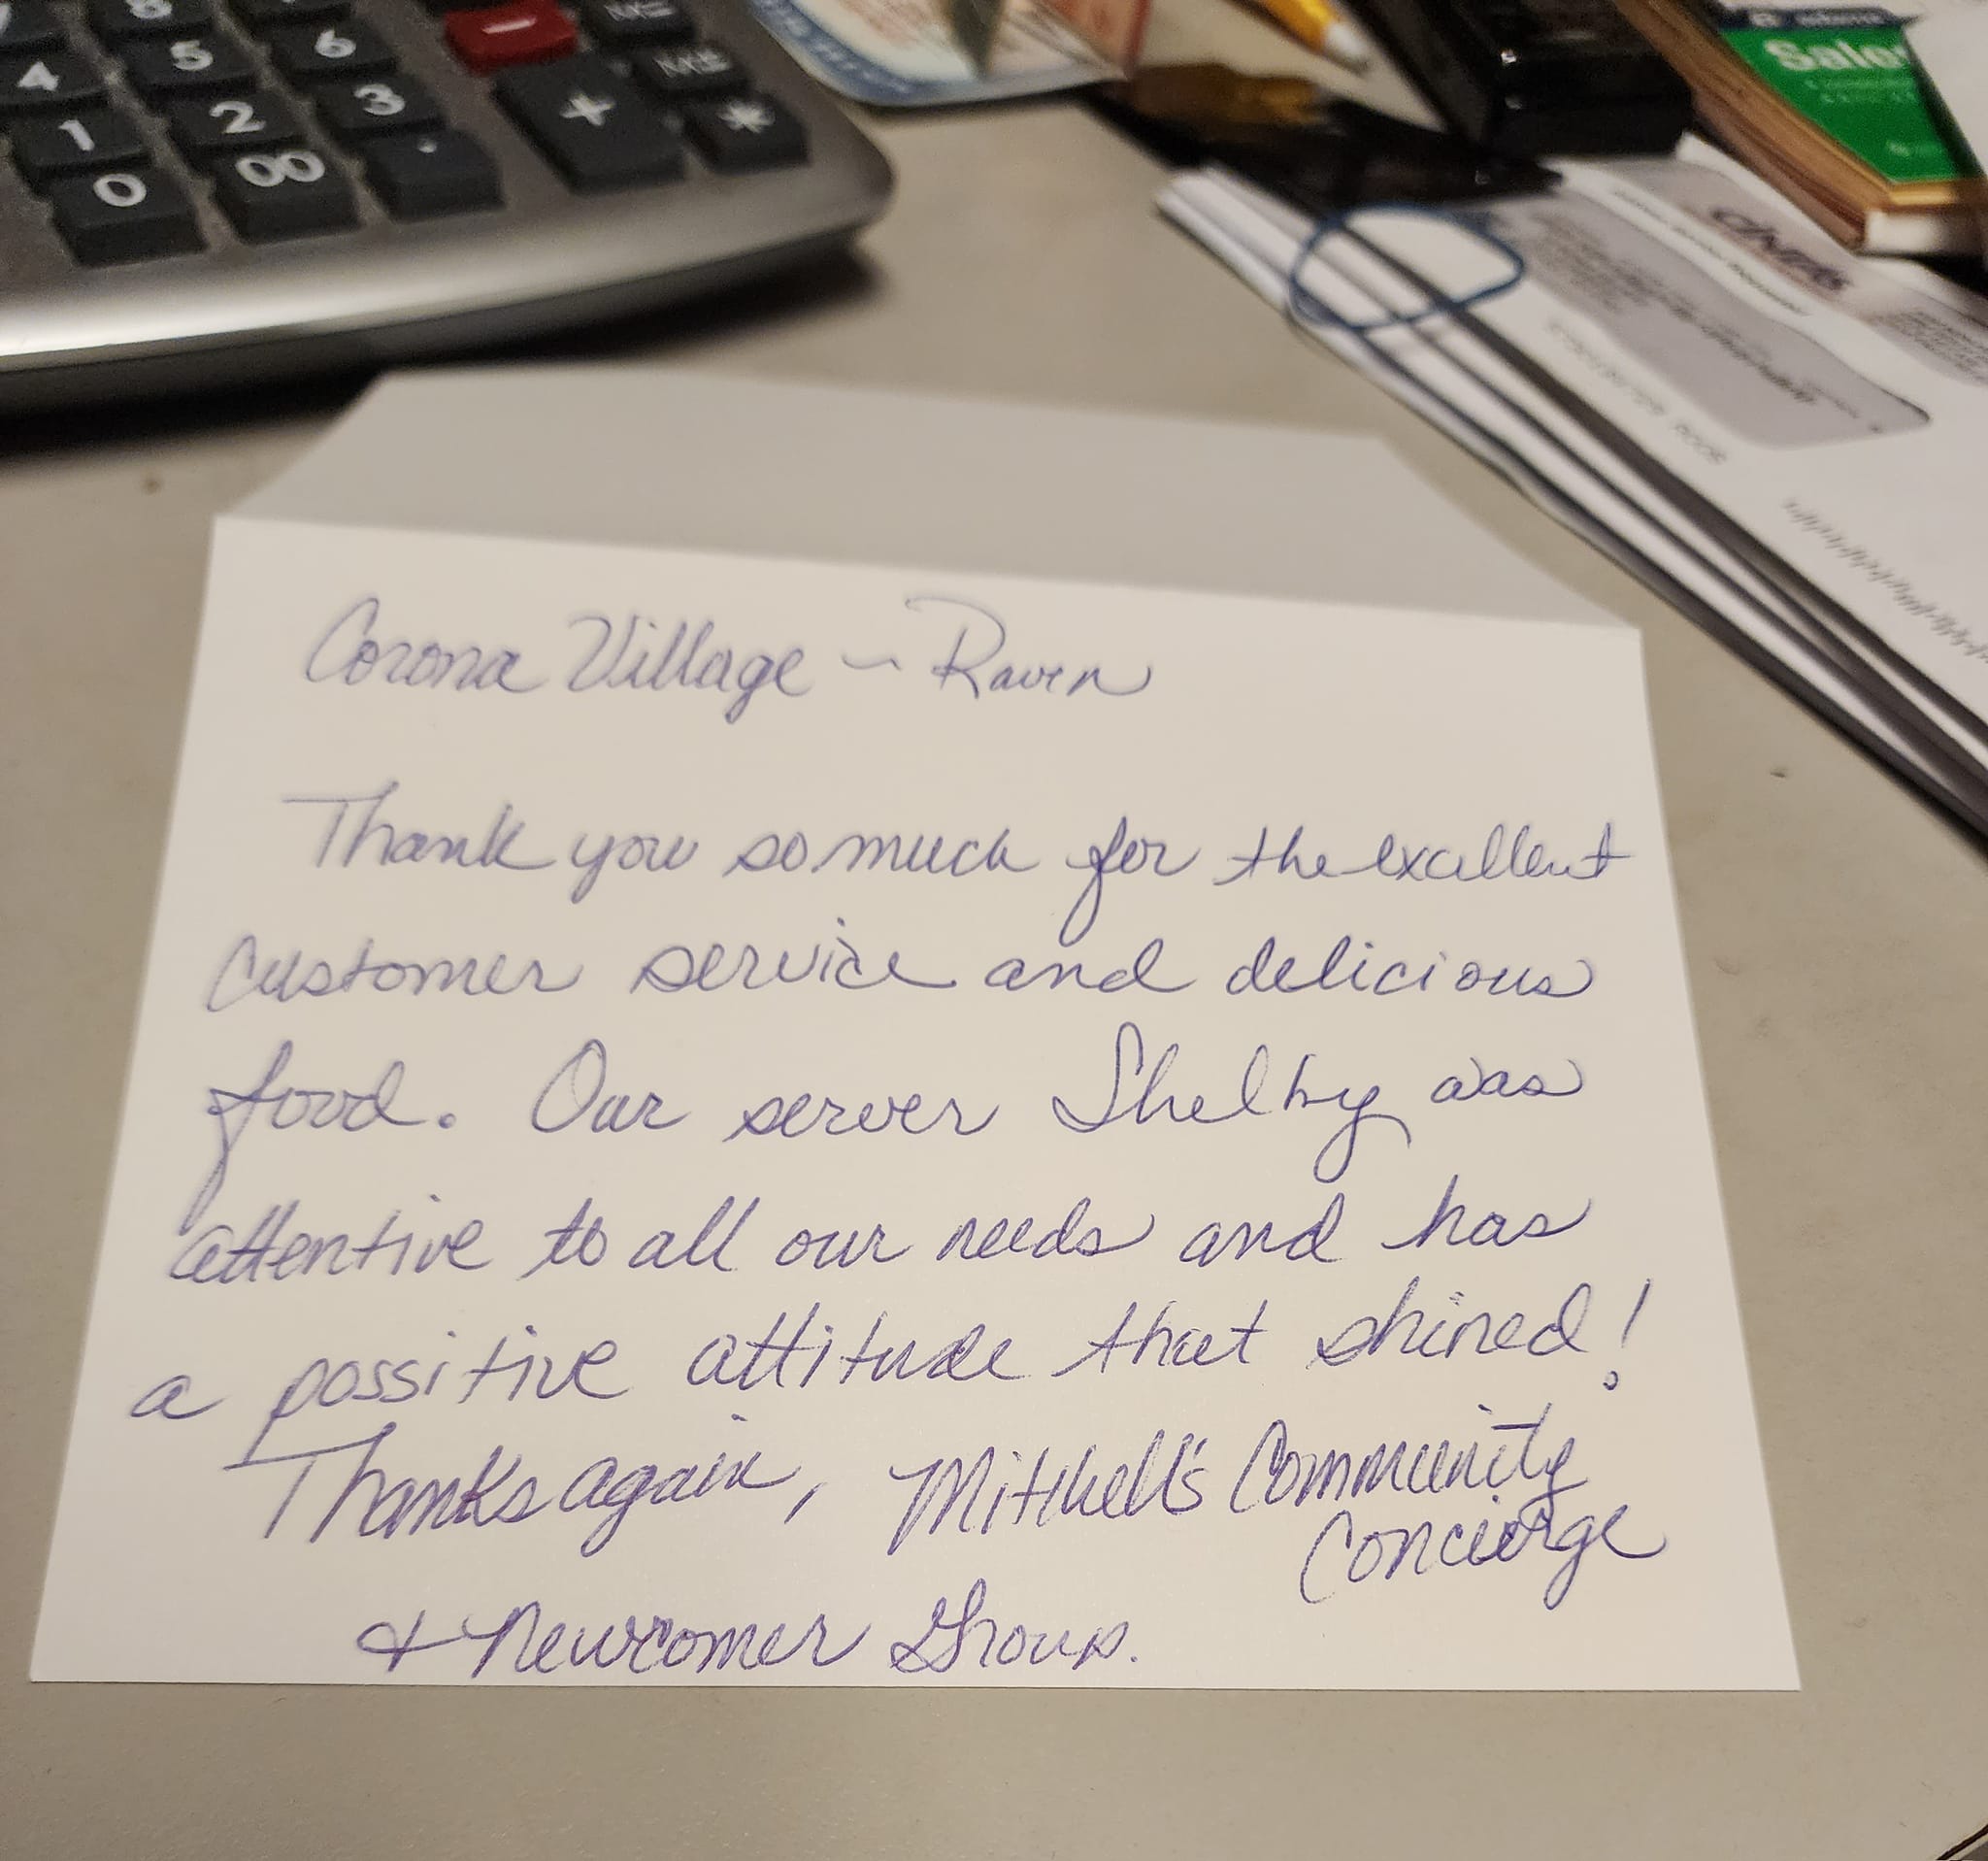 4 5 6 −
1 2 3 +
0 00 . *
Sales
Corona Village ~ Raven
Thank you so much for the excellent
Customer service and delicious
food. Our server Shelby was
attentive to all our needs and has
a possitive attitude that shined!
Thanks again, Mitchell's Community
Concierge
& Newcomer Group.